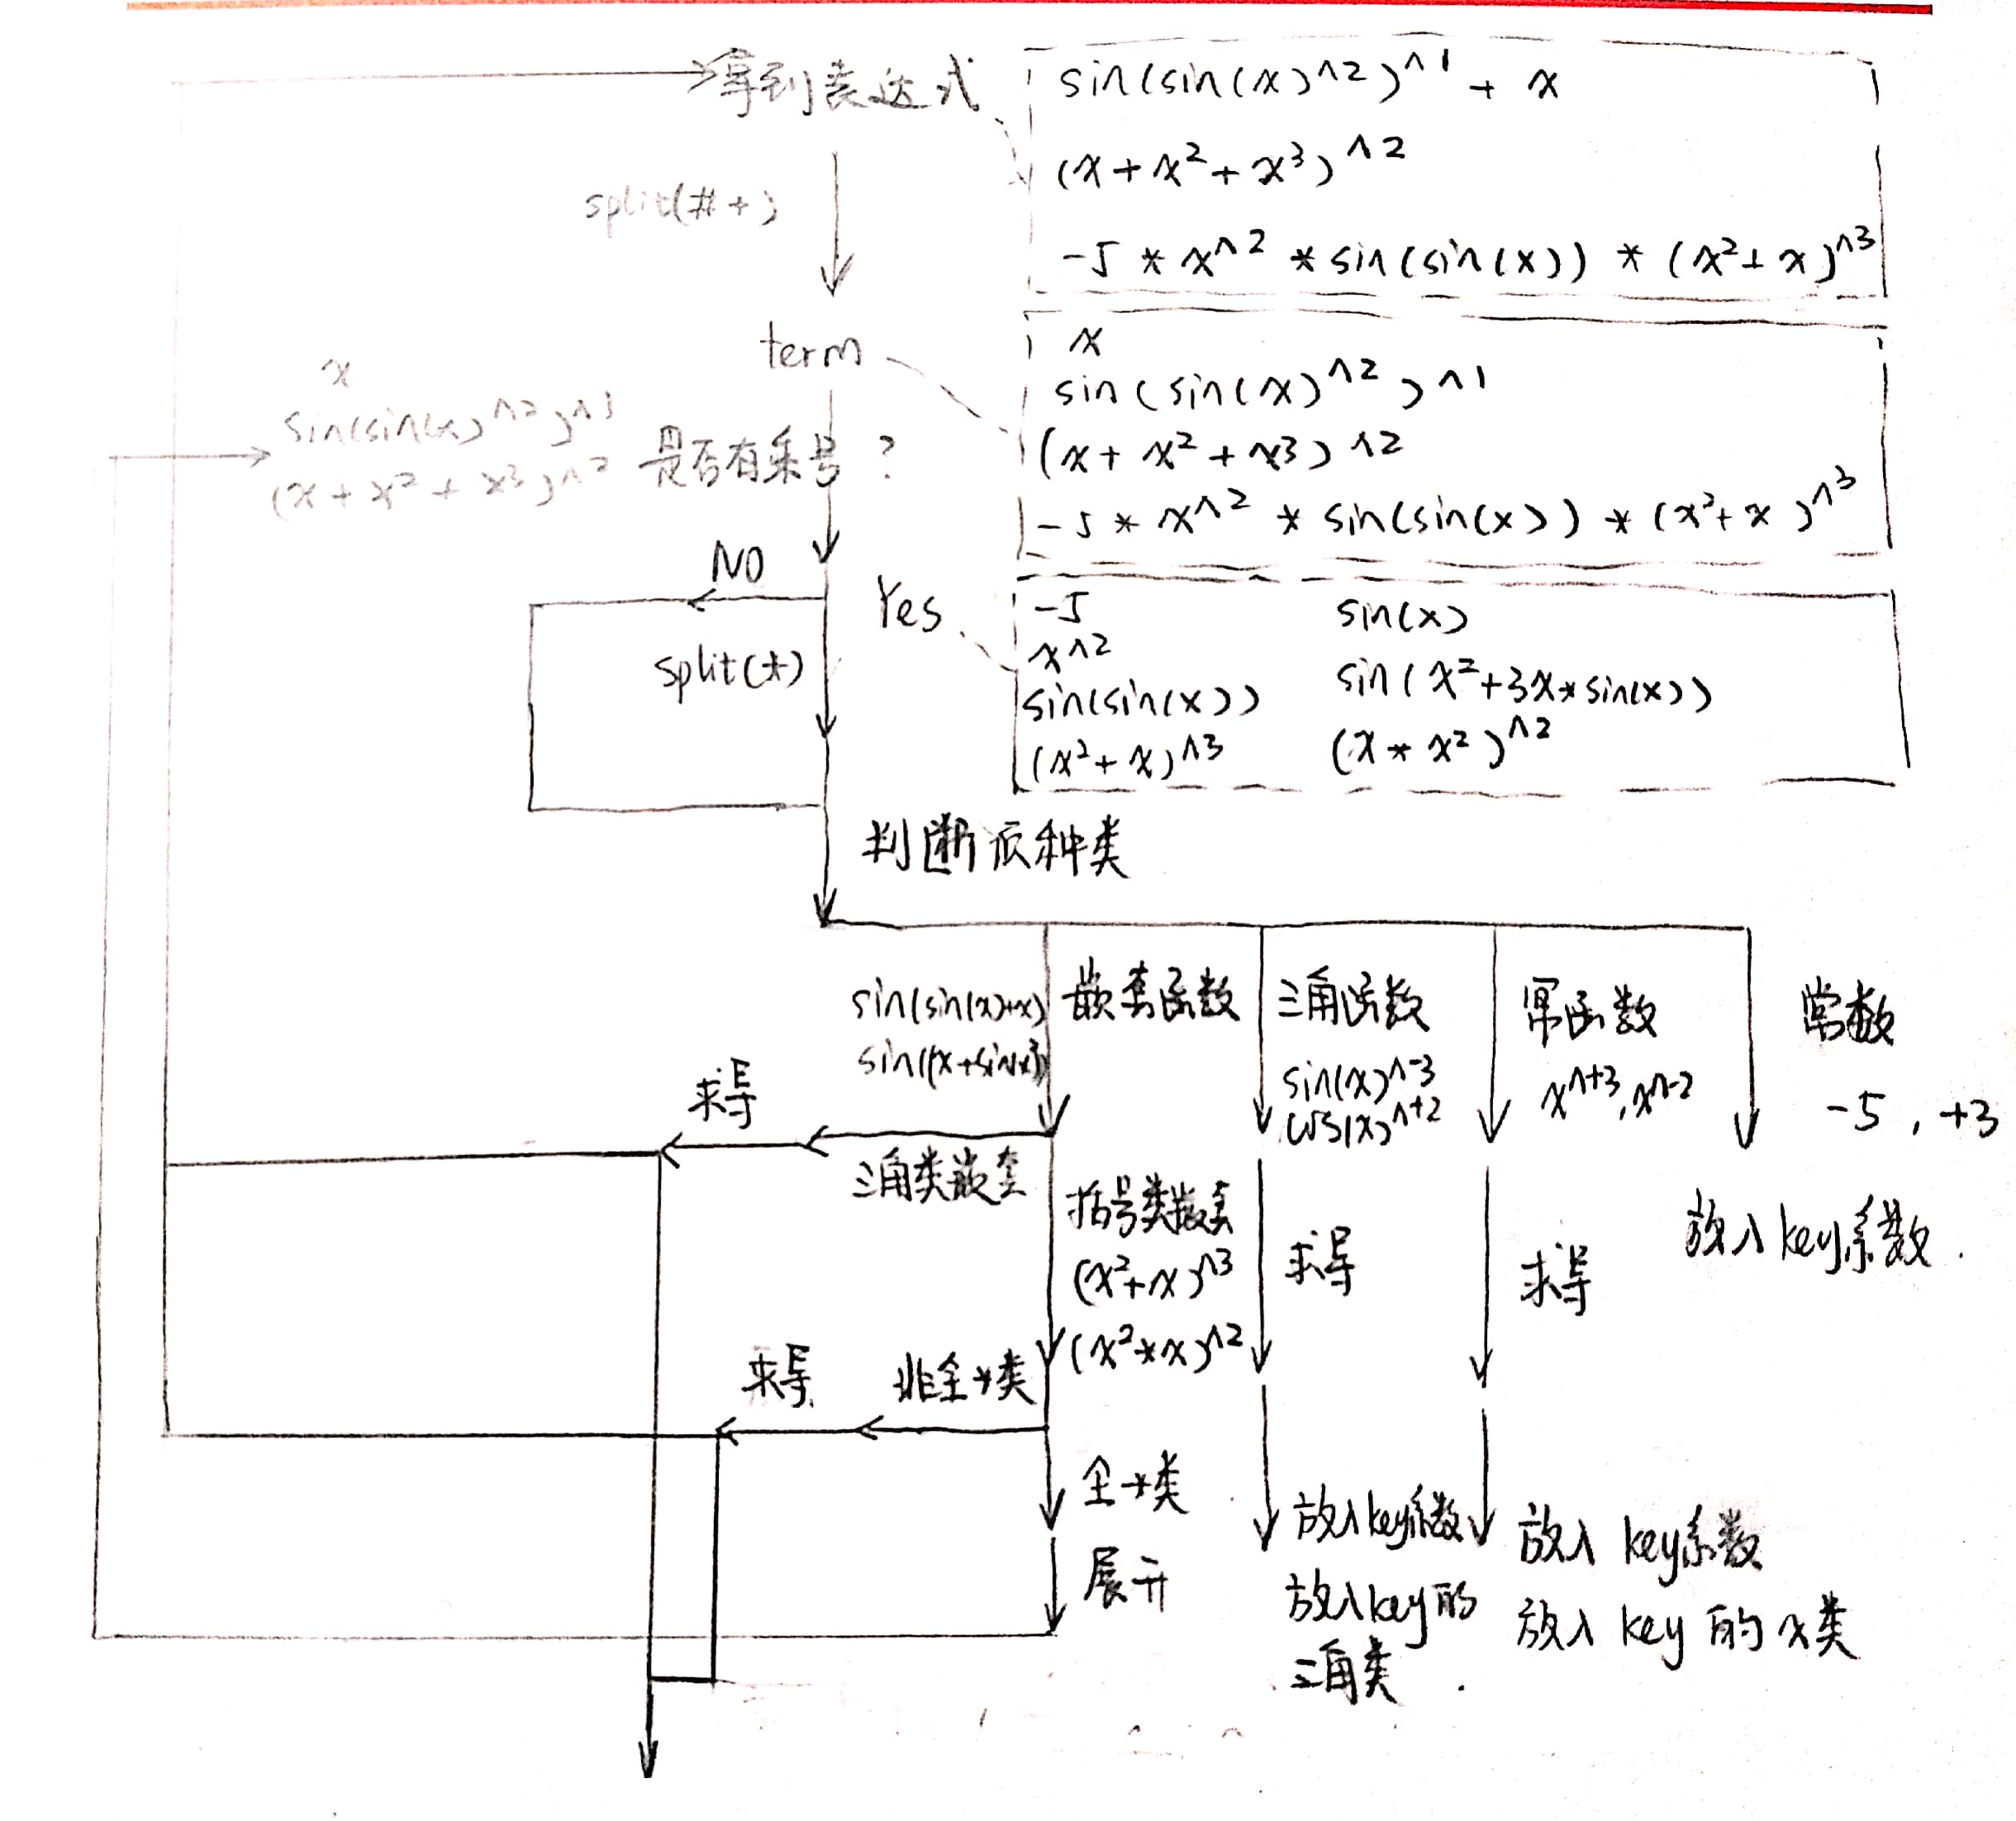 拿到表达式
sin(sin(x)^2)^1 + x
(x+x²+x³)^2
-5 * x^2 * sin(sin(x)) * (x²+x)^3
split(#+)
term
x
sin(sin(x)^2)^1
(x+x²+x³)^2
-5 * x^2 * sin(sin(x)) * (x²+x)^3
x
sin(sin(x)^2)^1
(x+x²+x³)^2
是否有乘号?
NO
Yes
split(*)
-5
x^2
sin(sin(x))
(x²+x)^3
sin(x)
sin(x²+3x*sin(x))
(x*x²)^2
判断底种类
sin(sin(x)+x)
嵌套函数
三角函数
sin(x)^-3
cos(x)^+2
幂函数
x^+3, x^-2
常数
-5, +3
求导
三角类嵌套
括号类嵌套
(x²+x)^3
(x²*x)^2
求导
求导
放入key系数.
求导
非全*类
全*类
展开
放入key系数
放入key的
三角类.
放入key系数
放入key的x类